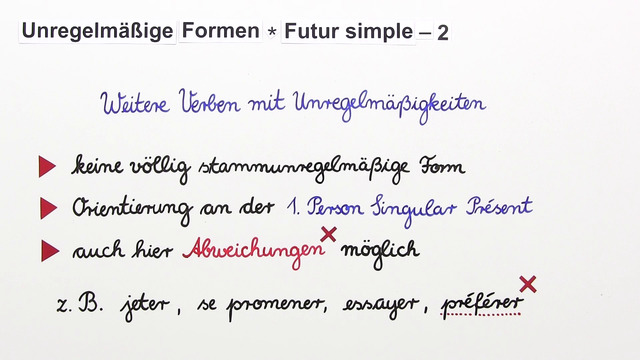 Unregelmäßige Formen * Futur simple – 2
Weitere Verben mit Unregelmäßigkeiten
keine völlig stammunregelmäßige Form
Orientierung an der 1. Person Singular Présent
auch hier Abweichungen möglich
z. B. jeter, se promener, essayer, préférer